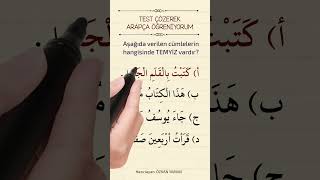 TEST ÇÖZEREK
ARAPÇA ÖĞRENİYORUM
Aşağıda verilen cümlelerin
hangisinde TEMYİZ vardır?
أ) كَتَبْتُ بِالْقَلَمِ
ب) هَذَا الْكِتَابُ
ج) جَاءَ يُوسُفُ
د) قَرَأْتُ أَرْبَعِينَ
Hazırlayan: ÖZKAN